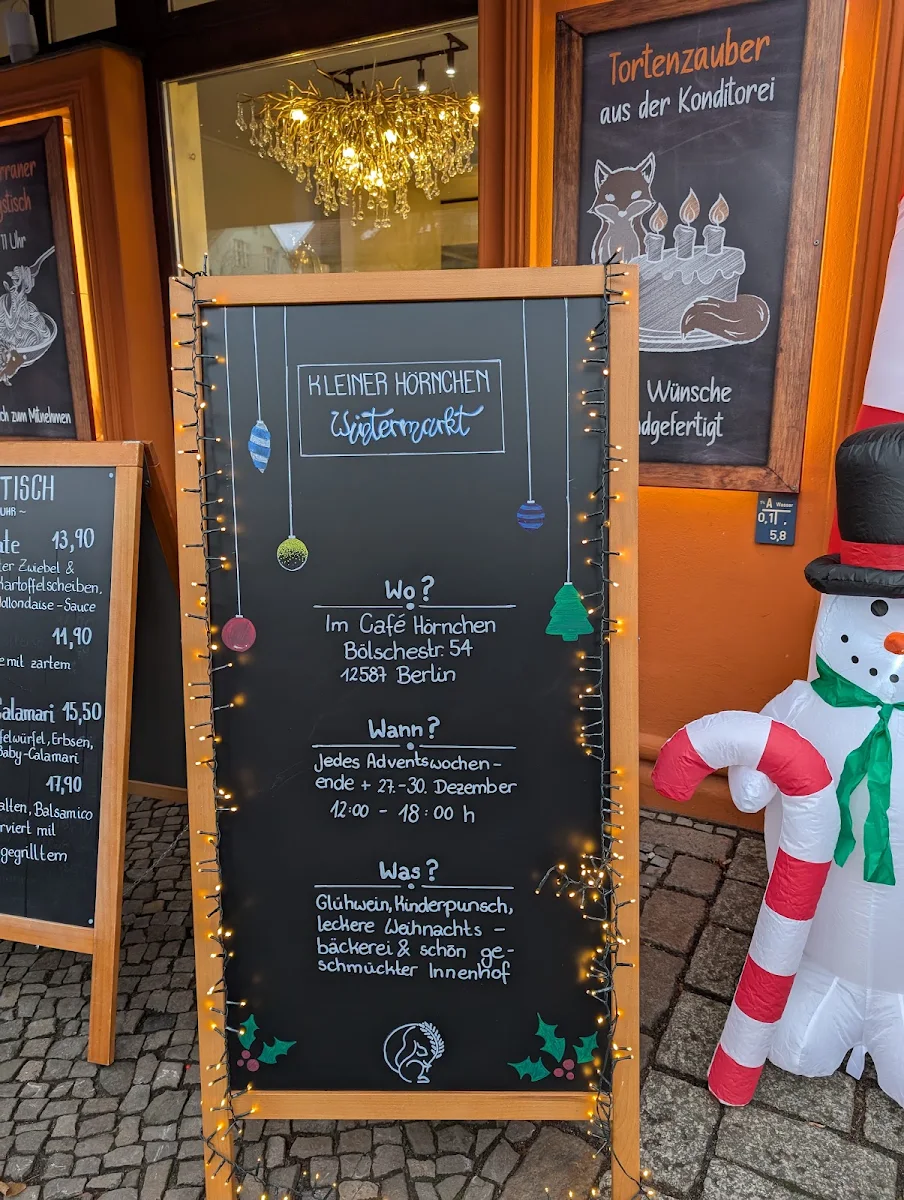 rraner
gstisch
11 Uhr
ch zum Mitnehmen
TISCH
UHR ~
ate 13,90
ter Zwiebel &
Kartoffelscheiben,
Hollondaise-Sauce
11,90
e mit zartem
Calamari 15,50
felwürfel, Erbsen,
Baby-Calamari
17,90
alten, Balsamico
rviert mit
gegrilltem
KLEINER HÖRNCHEN
Wintermarkt
Wo?
Im Café Hörnchen
Bölschestr. 54
12587 Berlin
Wann?
Jedes Adventswochen-
ende + 27.-30. Dezember
12:00 - 18:00 h
Was?
Glühwein, Kinderpunsch,
leckere Weihnachts-
bäckerei & schön ge-
schmückter Innenhof
Tortenzauber
aus der Konditorei
Wünsche
ndgefertigt
A Wasser
0,1
5,8